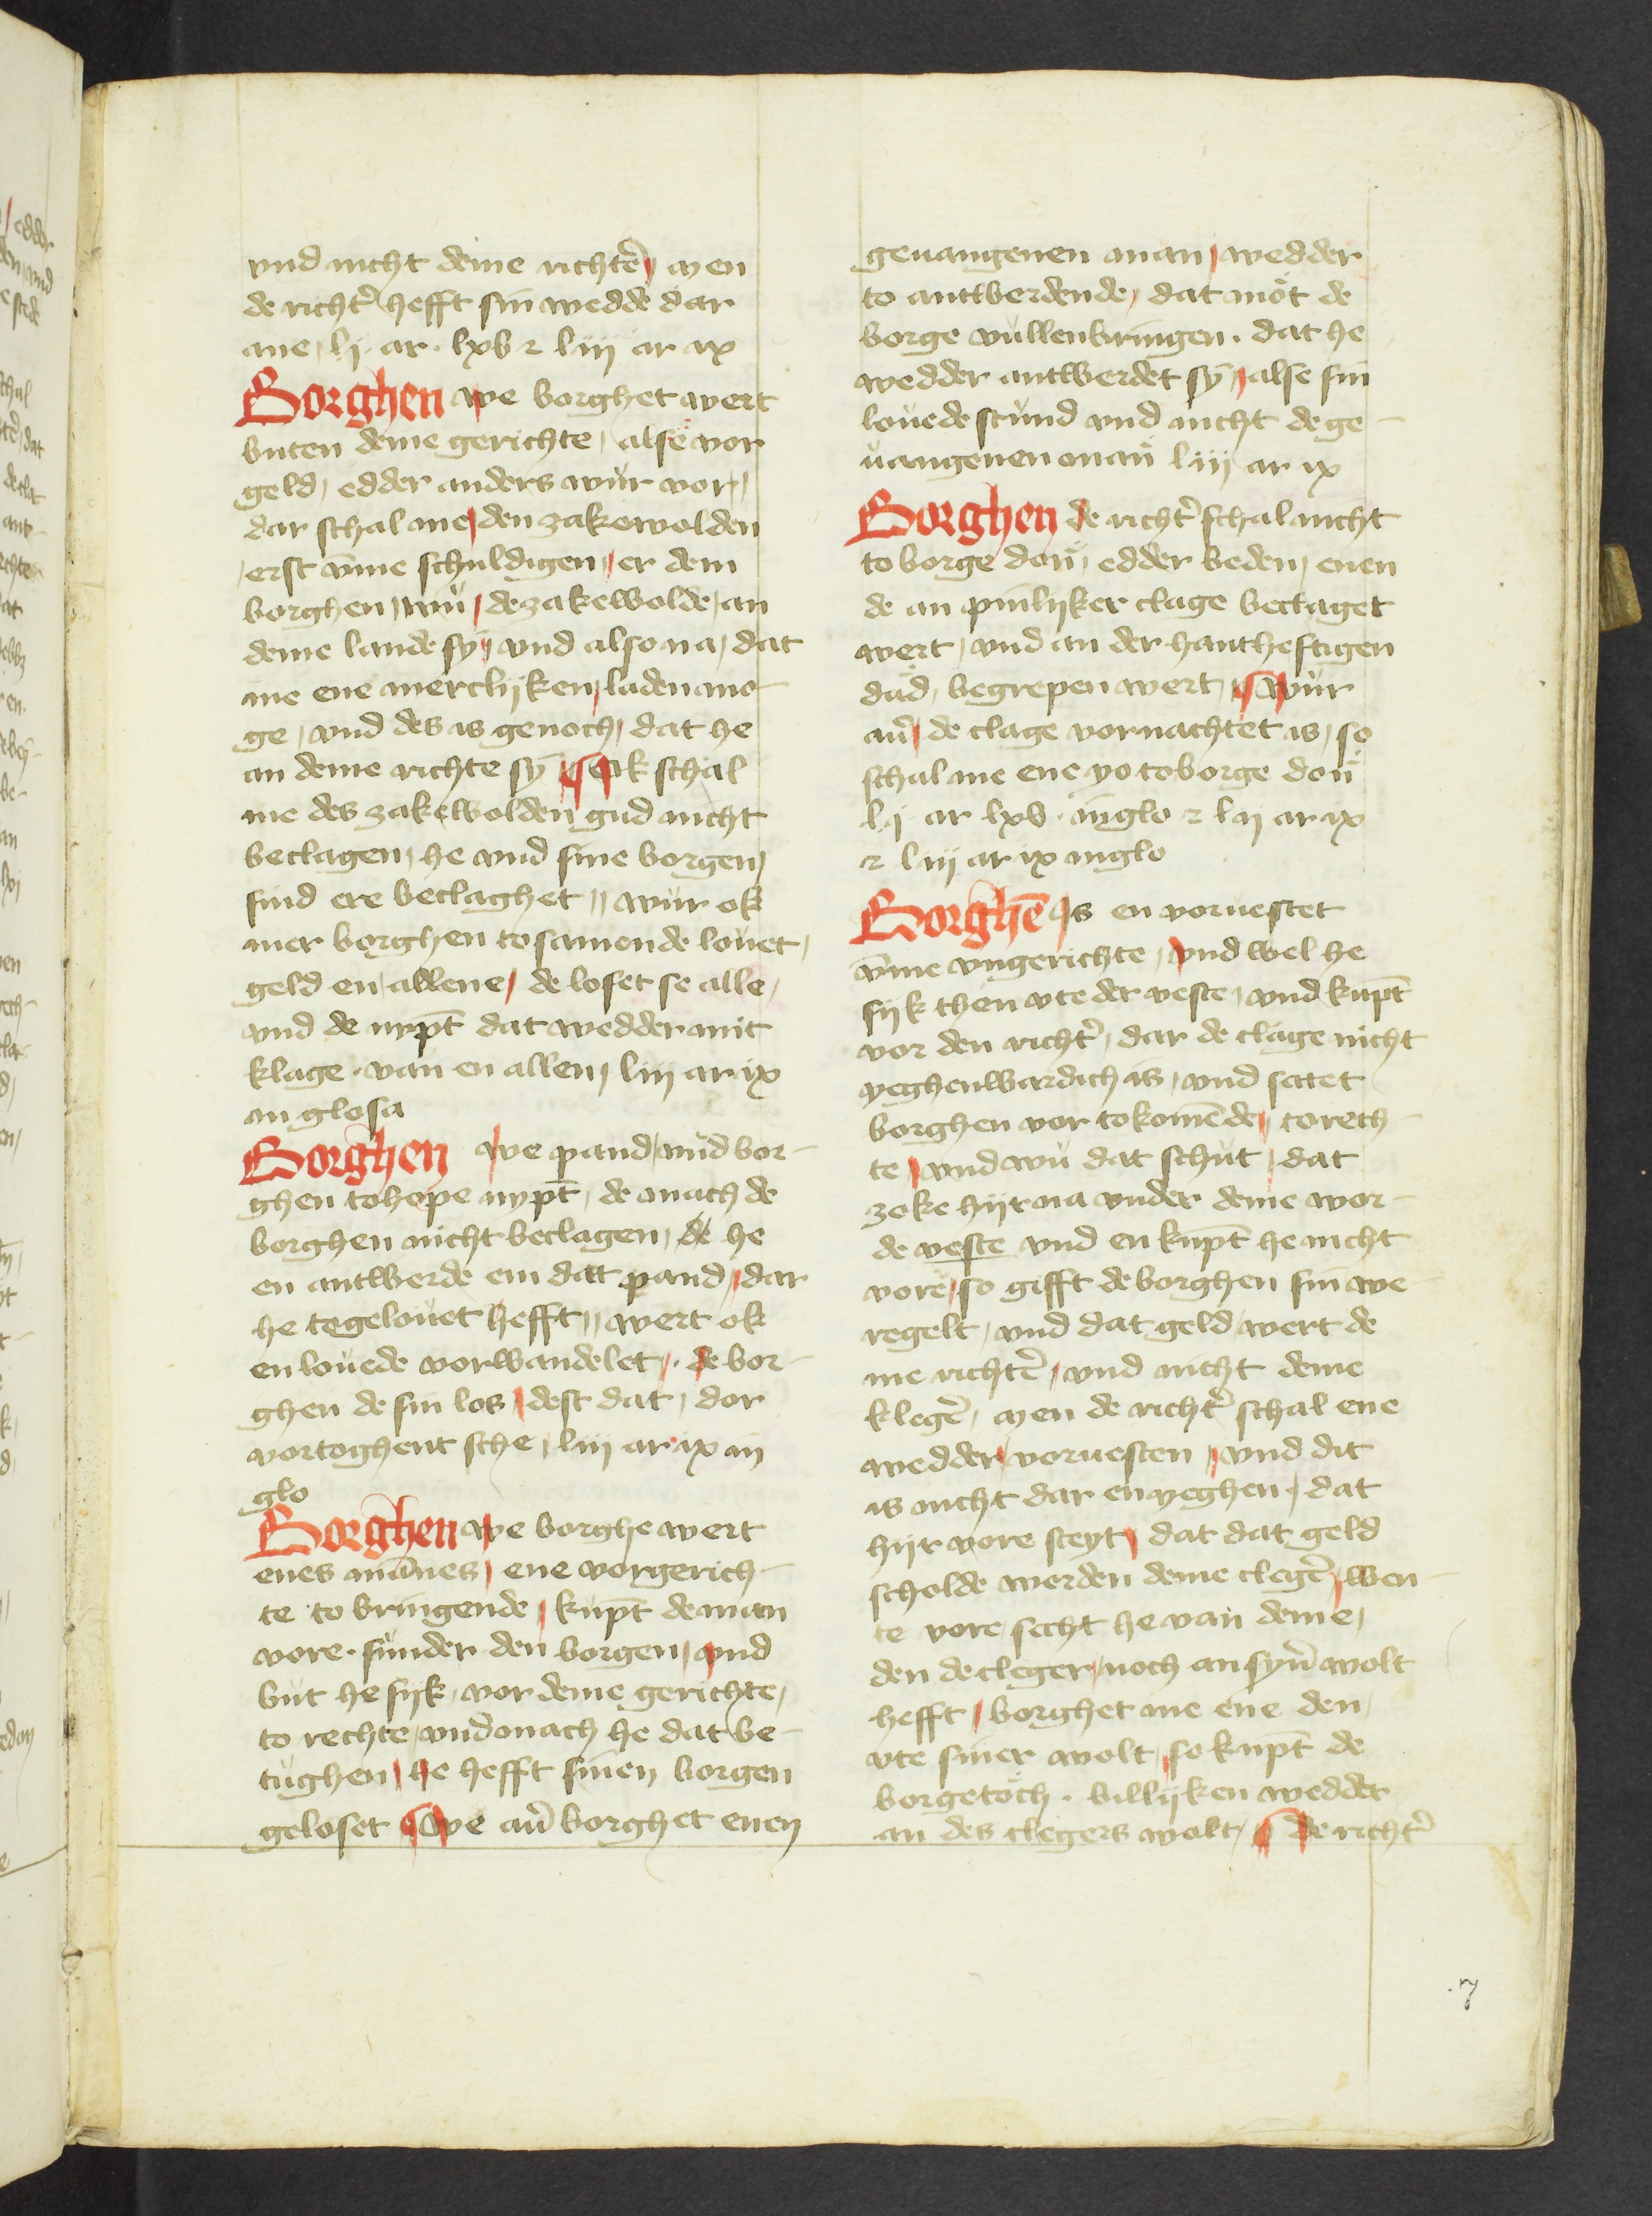 vnd nicht deme richtẽ / men
de richtˀ hefft sin wedde dar
ane / lj ar · lxv ⁊ liij ar ix
Borghen we borghet wert
buten deme gerichte / alse vor
geld / edder anders wur vor /
dar schal me / den zakewolden
erst v̄me schuldigen / er dem
borghen / wù / de zakewolde / an
deme lande sy / vnd also na / dat
me ene merclijken / laden mo-
ge / vnd des is genoch / dat he
an deme richte sȳ ¶ Ok schal
me des zakewolden gud nicht
beclagen / he vnd sine borgen /
sind ere beclaghet // wur ok
mer borghen tosamende louet /
geld en / allene / de loset se alle /
vnd de nypt̄ dat wedder mit
klage · van en allen / liij ar ix
in glosa
Borghen we pand / vnd bor-
ghen tohope nypt̄ / de mach de
borghen nicht beclagen / he
en antwerde em dat pand / dar
he togelouet hefft // wert ok
en louede vorwandelet / · de bor-
ghen de sin los / dest dat / dor
vortoghent sche / liij ar ix in
glo
Borghen we borghe wert
enes mānes / ene vorgerich-
te to bringende / kupt̄ de man
vore · sunder den borgen / vnd
but he sijk / vor deme gerichte /
to rechte / vnd mach he dat be-
tughen / he hefft sinen borgen
geloset ¶ we auˀ borghet enen
geuangenen man / wedder
to antwerdende / dat mot de
borge vullenbringen · dat he
wedder antwerdet sȳ / alse sin
louede stund vnd nicht de ge-
uangenen man liij ar ix
Borghen de richtˀ schal nicht
to borge don / edder beden / enen
de an pinlijker clage beclaget
wert / vnd an der hantheftigen
dad / begrepen wert / ¶ wur
auˀ / de clage vornachtet is / so
schal me ene yo to borge don
lj ar lxv · in glo ⁊ lij ar ix
⁊ liij ar ix in glo
Borghē Is en voruestet
v̄me vngerichte / vnd wel he
sijk then vte der veste / vnd kupt̄
vor den richtˀ / dar de clage nicht
yeghenwardich is / vnd setet
borghen vor tokomēde / to rech-
te / vnd wu dat schut / dat
zoke hijr na vnder deme wor-
de veste vnd en kupt̄ he nicht
vore / so gifft de borghen sin we
regelt / vnd dat geld / wert de
me richtẽ / vnd nicht deme
klegẽ / men de richtˀ schal ene
wedder / voruesten / vnd dit
is nicht dar en yeghen / dat
hijr vore steyt / dat dat geld
scholde werden deme clegẽ / wen-
te vore / secht he van deme /
den de cleger / noch an synˀ wolt
hefft / borghet me ene den /
vte siner wolt / so kupt̄ de
borgetoch · billijken wedder
an des clegers wolt / ¶ de richtˀ
7